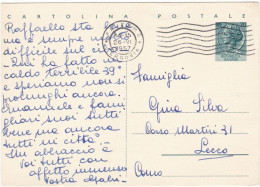 CARTOLINA POSTALE
Raffaello sta
ma è sempre
difficile sul ci
Qui ha fatto
caldo terribile 39°
e speriamo non si
prolunghi ancora.
Emanuele e fami
gliari suoi tutti
bene ma ancora
tutti in città
Un abbraccio a
Voi tutti con
affetto immenso
Vostra
Famiglia
Gino Silva
Corso Martiri 31
Lecco
Como